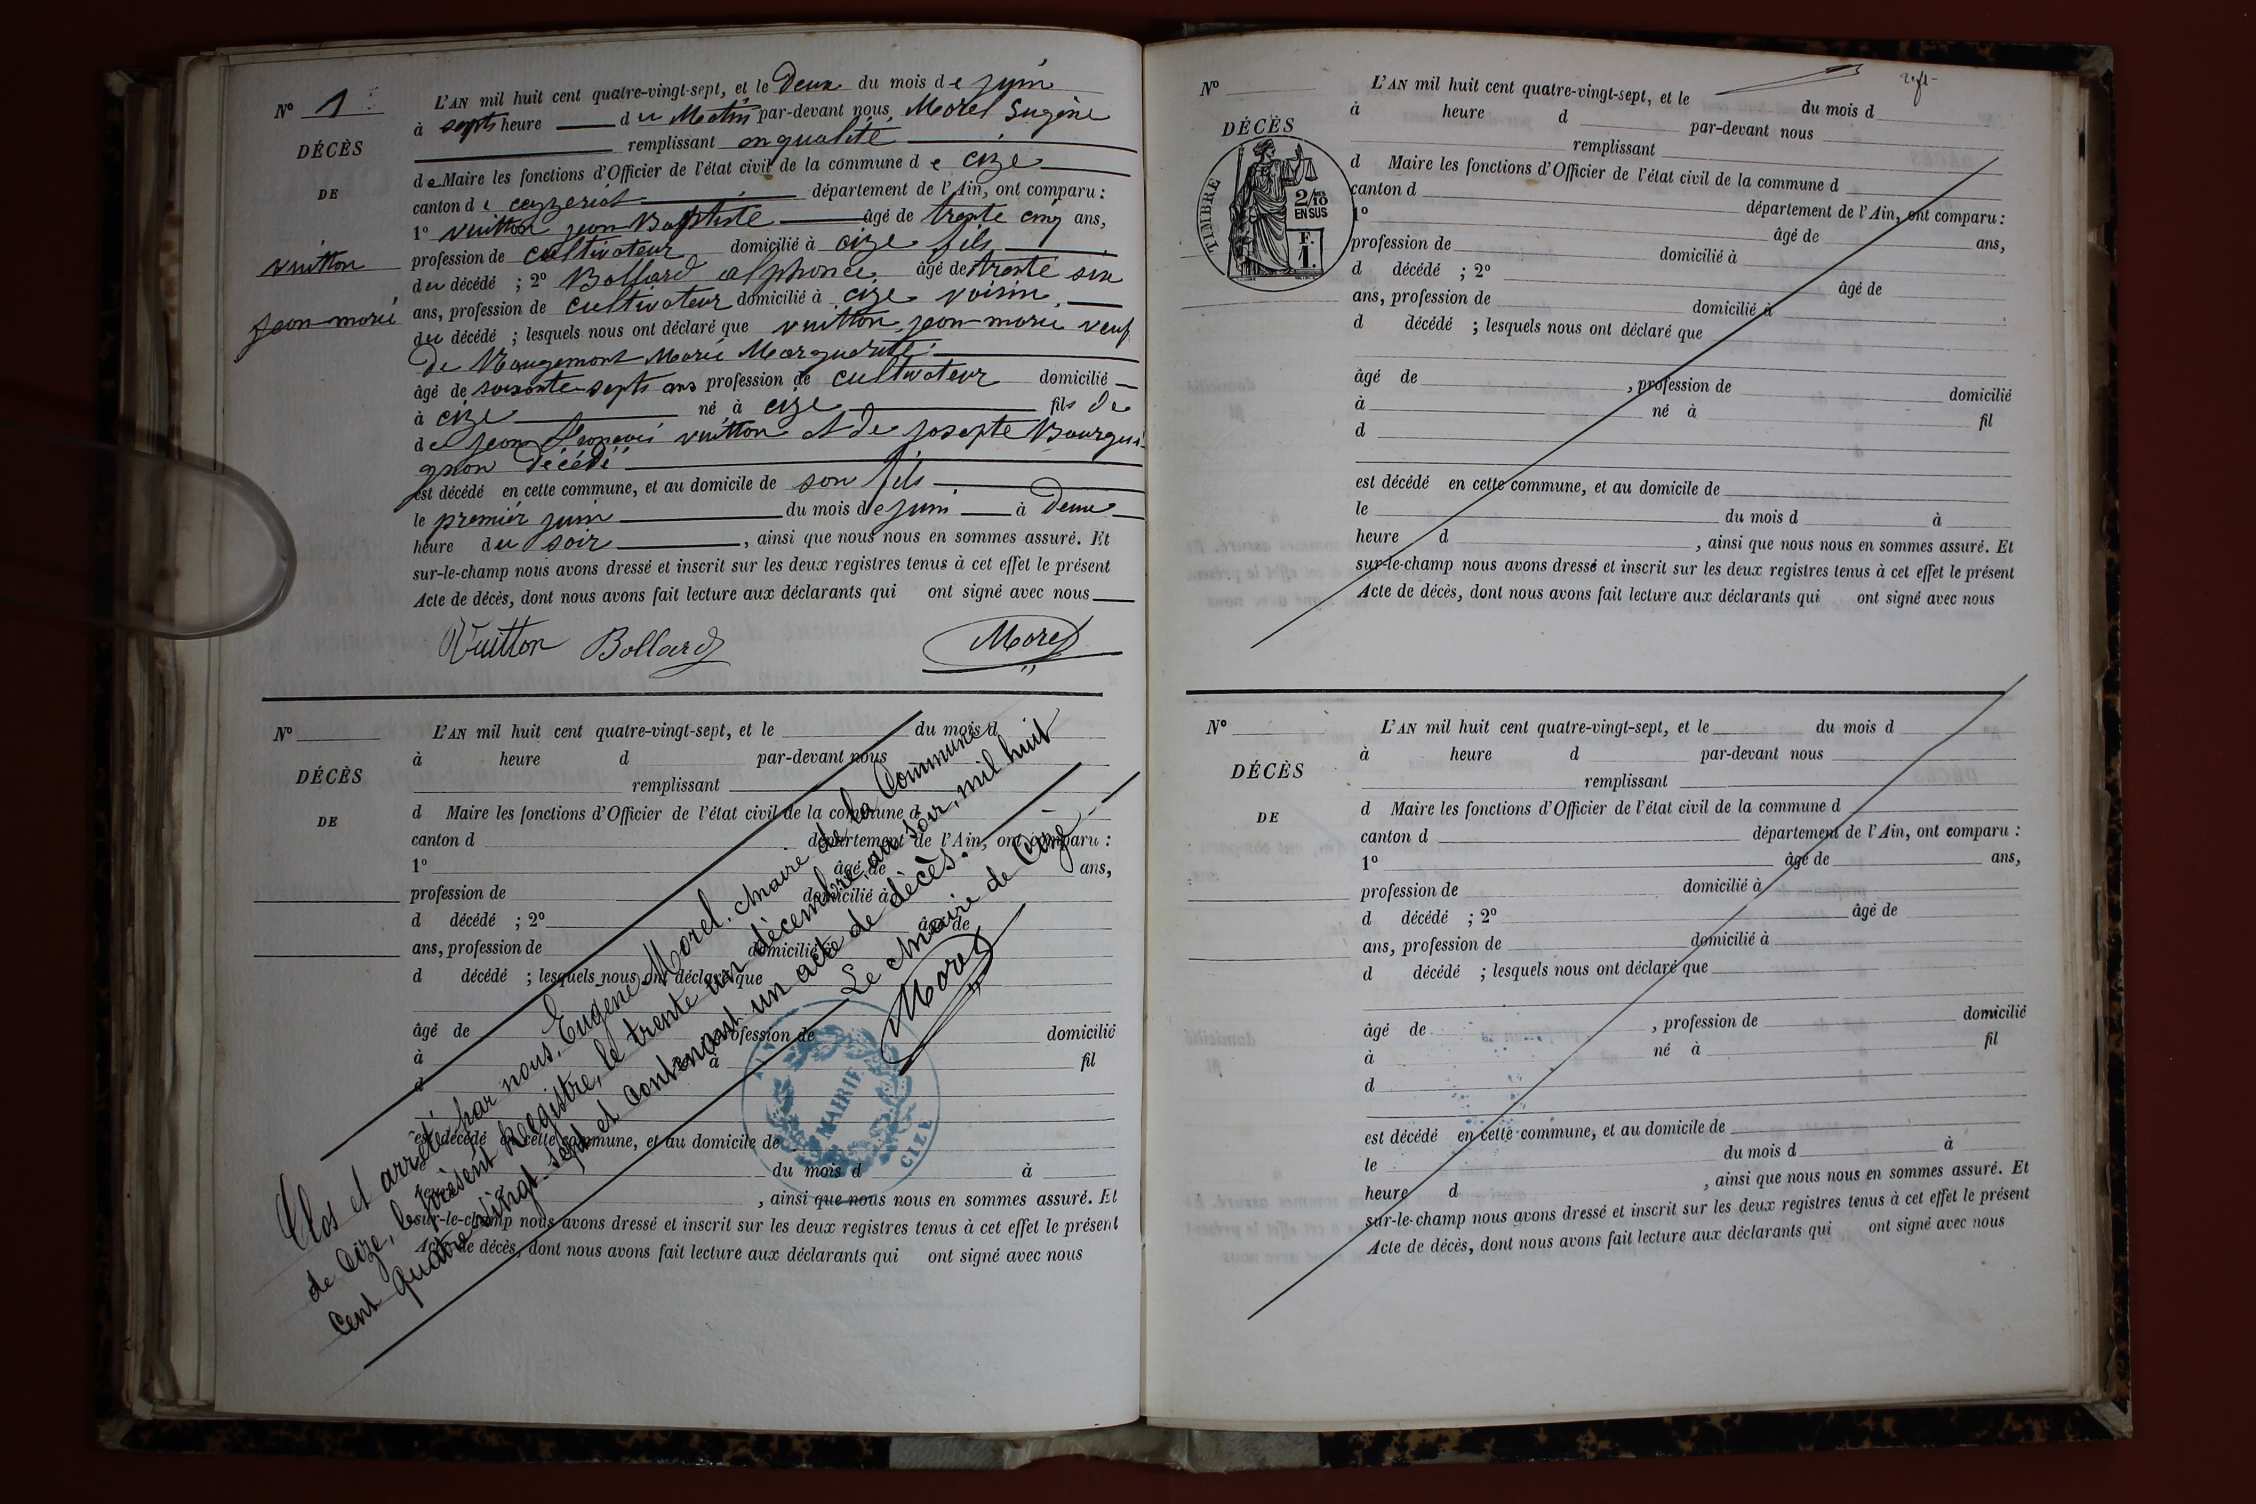 N° 1
DÉCÈS
DE
Vuitton
Jean-marie
L'AN mil huit cent quatre-vingt-sept, et le Deux du mois de juin
à septs heure du Matin par-devant nous, Morel Eugène
remplissant en qualité
de Maire les fonctions d'Officier de l'état civil de la commune de Cize
canton de ceyzeriat département de l'Ain, ont comparu :
1° Vuitton jean Baptiste âgé de trente cinq ans,
profession de cultivateur domicilié à cize fils
du décédé ; 2° Bollard alphonce âgé de trente six
ans, profession de cultivateur domicilié à cize voisin,
du décédé ; lesquels nous ont déclaré que vuitton jean-marie veuf
de Rougemont Marie Marguerite
âgé de soixante-septs ans profession de cultivateur domicilié
à cize né à cize fils de
de jean François vuitton et de josepte Bourgui-
gnon décédé
est décédé en cette commune, et au domicile de son fils
le premier juin du mois de juin à Deux
heure du soir, ainsi que nous nous en sommes assuré. Et
sur-le-champ nous avons dressé et inscrit sur les deux registres tenus à cet effet le présent
Acte de décès, dont nous avons fait lecture aux déclarants qui ont signé avec nous
Vuitton Bollard Morel
N°
DÉCÈS
DE
L'AN mil huit cent quatre-vingt-sept, et le du mois d
à heure d par-devant nous
remplissant
d Maire les fonctions d'Officier de l'état civil de la commune d
canton d département de l'Ain, ont comparu :
1° âgé de ans,
profession de domicilié à
d décédé ; 2° âgé de
ans, profession de domicilié à
d décédé ; lesquels nous ont déclaré que
âgé de profession de domicilié
à né à fil
d
est décédé en cette commune, et au domicile de
le du mois d à
heure d , ainsi que nous nous en sommes assuré. Et
sur-le-champ nous avons dressé et inscrit sur les deux registres tenus à cet effet le présent
Acte de décès, dont nous avons fait lecture aux déclarants qui ont signé avec nous
Clos et arrêté par nous, Eugène Morel, Maire de la Commune
de Cize, le présent Registre, le trente un décembre, au soir, mil huit
cent quatre-vingt-sept et contenant un acte de décès.
Le Maire de Cize
Morel
MAIRIE
CIZE
N°
DÉCÈS
TIMBRE
2/10
EN SUS
F.
1.
L'AN mil huit cent quatre-vingt-sept, et le du mois d
à heure d par-devant nous
remplissant
d Maire les fonctions d'Officier de l'état civil de la commune d
canton d département de l'Ain, ont comparu :
1° âgé de ans,
profession de domicilié à
d décédé ; 2° âgé de
ans, profession de domicilié à
d décédé ; lesquels nous ont déclaré que
âgé de , profession de domicilié
à né à fil
d
est décédé en cette commune, et au domicile de
le du mois d à
heure d , ainsi que nous nous en sommes assuré. Et
sur-le-champ nous avons dressé et inscrit sur les deux registres tenus à cet effet le présent
Acte de décès, dont nous avons fait lecture aux déclarants qui ont signé avec nous
N°
DÉCÈS
DE
L'AN mil huit cent quatre-vingt-sept, et le du mois d
à heure d par-devant nous
remplissant
d Maire les fonctions d'Officier de l'état civil de la commune d
canton d département de l'Ain, ont comparu :
1° âgé de ans,
profession de domicilié à
d décédé ; 2° âgé de
ans, profession de domicilié à
d décédé ; lesquels nous ont déclaré que
âgé de , profession de domicilié
à né à fil
d
est décédé en cette commune, et au domicile de
le du mois d à
heure d , ainsi que nous nous en sommes assuré. Et
sur-le-champ nous avons dressé et inscrit sur les deux registres tenus à cet effet le présent
Acte de décès, dont nous avons fait lecture aux déclarants qui ont signé avec nous